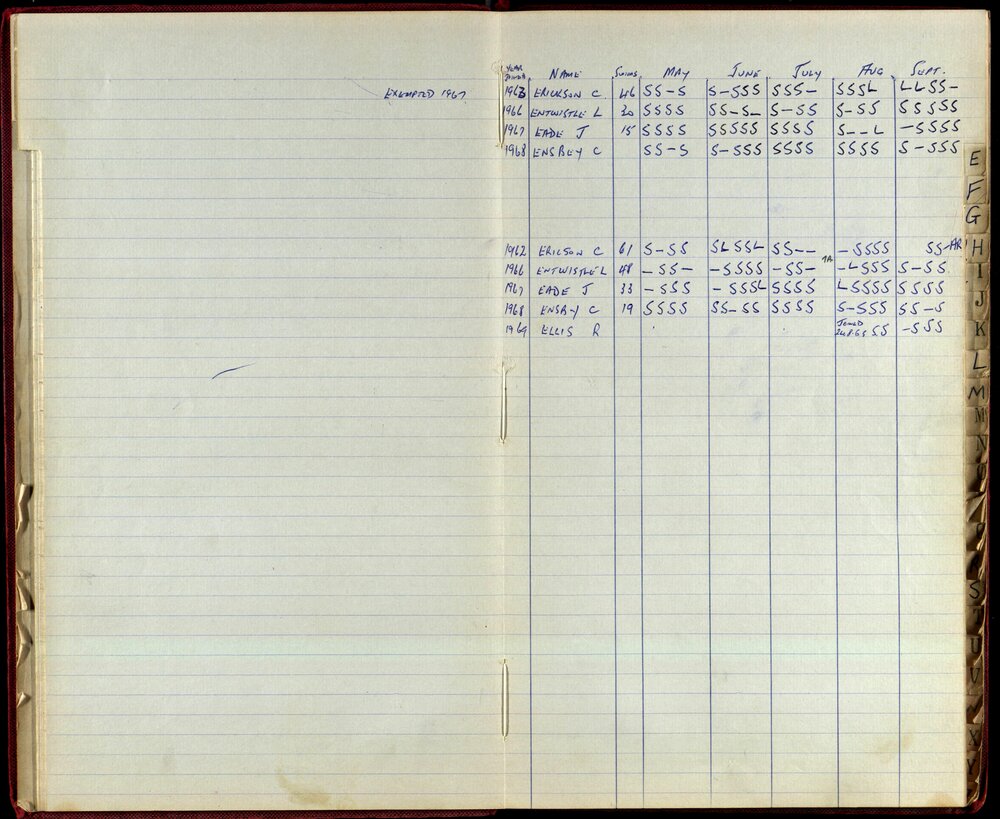 YEAR JOINED NAME SWIMS MAY JUNE JULY AUG SEPT.
EXEMPTED 1967
1963 ERICKSON C. 46 SS-S S-SSS SSS- SSSL LLSS-
1966 ENTWISTLE L 30 SSSS SS-S- S-SS S-SS SSSSS
1967 EADE J 15 SSSS SSSSS SSSS S--L -SSSS
1968 ENSBEY C SS-S S-SSS SSSS SSSS S-SSS
1962 ERICSON C 61 S-SS SLSSL SS-- -SSSS SS-AR
1966 ENTWISTLE L 48 -SS- -SSSS -SS- -LSSS S-SS
1967 EADE J 33 -SSS -SSSL SSSS LSSSS SSSS
1968 ENSBY C 19 SSSS SS-SS SSSS S-SSS SS-S
1969 ELLIS R JOINED SS -SSS
E
F
G
H
I
J
K
L
M
S
U
V
X
Y